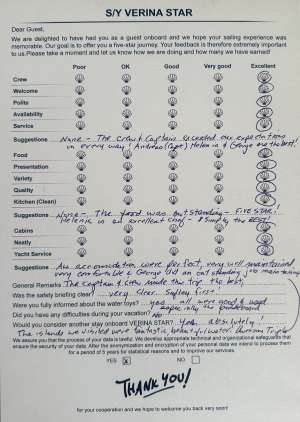 S/Y VERINA STAR
Dear Guest,
We are delighted to have had you as a guest onboard and we hope your sailing experience was
memorable. Our goal is to offer you a five-star journey. Your feedback is therefore extremely important
to us.Please take a moment and let us know how we are doing and how many we have earned!
Poor OK Good Very good Excellent
Crew
Welcome
Polite
Availability
Service
Suggestions None - The crew & Captain exceeded our expectations
in every way! Andreas (Capt) Helen is & George are the best!
Food
Presentation
Variety
Quality
Kitchen (Clean)
Suggestions None - The food was outstanding - FIVE STAR!
is an excellent - Simply the BEST!
Cabins
Neatly
Yacht Service
Suggestions All accommodations were perfect, very well maintained
very comfortable & George did an outstanding job maintaining
General Remarks The Captain & crew made this trip the best,
Was the safety briefing clear? very clear. Safety first!
Were you fully informed about the water toys? yes all were good & used
especially the paddleboard
Did you have any difficulties during your vacation? No!
Would you consider another stay onboard VERINA STAR? Yes, absolutely!
The islands we visited were fantastic
We assure you that the process of your data is lawful. We develop appropriate technical and organizational safeguards that
ensure the security of your data. After the anonymization and encryption of your personal data we intend to process them
for a period of 5 years for statistical reasons and to improve our services.
YES X NO
THANK YOU!
for your cooperation and we hope to welcome you back very soon!